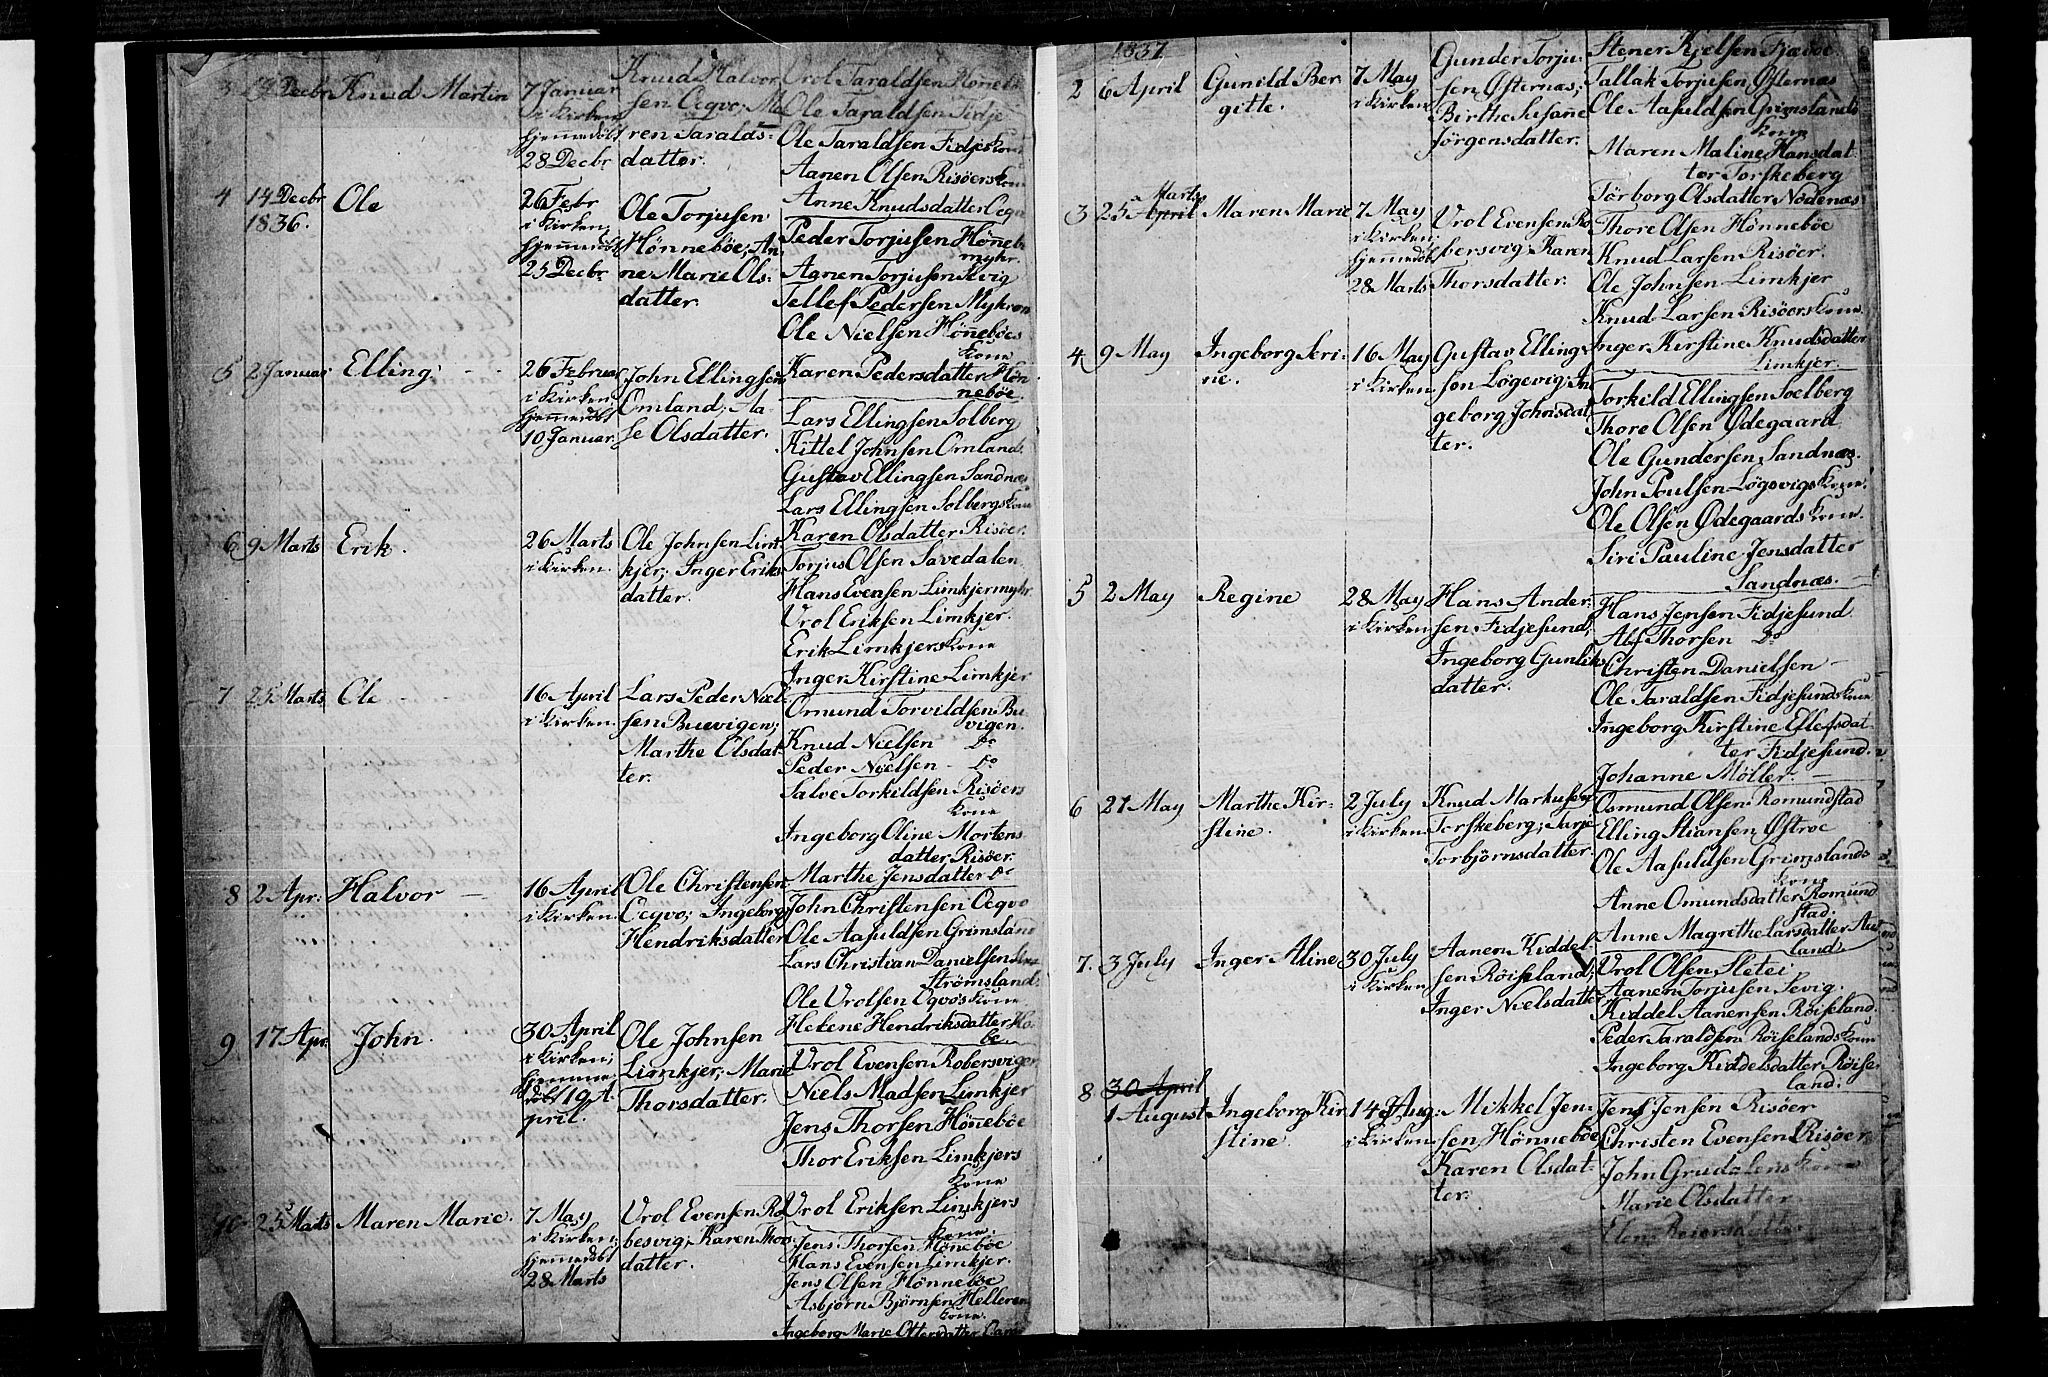 3 24 Decbr Knud Martin
7 Januar
i Kirken
hjemmedöbt
28 Decbr
Knud Halvor-
sen Ocqvo; Ma-
ren Taralds-
datter.
Ole Taraldsen Fidje
Ole Taraldsen Fidjes Kone
Aanen Olsen Risöers Kone
Anne Knudsdatter Ocqvo
4 14 Decbr
1836.
Ole
26 Febr
i Kirken,
hjemmedöbt
25 Decbr
Ole Torjusen
Hönneböe; An-
ne Marie Ols-
datter.
Peder Torjusen Hönneb.
myhr.
Agnen Torjusen Sevig
Tellef Pedersen Myhren
Ole Nielsen Hönneböes
Kone
Karen Pedersdatter Hön-
neböe.
5 2 Januar Elling.
26 Februar
i Kirken,
hjemmedöbt
10 Januar.
John Ellingsen
Omland; Aa-
se Olsdatter.
Lars Ellingsen Solberg
Kittel Johnsen Omland.
Gustav Ellingsen Sandnæs
Lars Ellingsen Solbergs Kone
Karen Olsdatter Risöer.
6 9 Marts Erik.
26 Marts
i Kirken.
Ole Johnsen Lim-
kjer; Inger Eriks-
datter.
Torjus Olsen Savedalen
Hans Evensen Limkjermyhr.
Vrol Eriksen Limkjer.
Erik Limkjers Kone
Inger Kirstine Limkjer
7 25 Marts Ole
16 April
i Kirken.
Lars Peder Niel-
sen Buevigen;
Marthe Olsdat-
ter.
Omund Torvildsen Bu-
vigen.
Knud Nielsen Do
Peder Nielsen - Do
Salve Torkildsen Risöers
Kone
Ingeborg Oline Mortens
datter Risöer.
Marthe Jensdatter Do
8 2 Apr: Halvor
16 April
i Kirken.
Ole Christensen
Ocqvo; Ingeborg
Hendriksdatter
John Christensen Ocqvo
Ole Aasuldsen Grimsland
Lars Christian Danielsen
Strömsland.
Ole Vrolsen Oqvos Kone
Helene Hendriksdatter Ho-
be.
9 17 Apr. John.
30 April
i Kirken;
hjemme
döbt 19 A-
pril.
Ole Johnsen
Limkjer; Marie
Thorsdatter.
Vrol Evensen Robersvigen
Niels Madsen Limkjer
Jens Thorsen Hönneböe
Thor Eriksen Limkjers
Kone
Vrol Eriksen Limkjers
Kone.
10 25 Marts Maren Marie.
7 May
i Kirken;
hjemmedöbt
28 Marts
Vrol Evensen Ro-
besvig; Karen Thors-
datter.
Jens Thorsen Hönneböe
Hans Evensen Limkjer.
Jens Olsen Hönneböe
Asbjörn Björnsen Helleren
Kone.
Ingeborg Marie Ottersdatter
1837
2 6 April Gunild Ber-
gitte.
7 May
i Kirken
Gunder Torju-
sen Østernæs;
Birthe Susanne
Jörgensdatter.
Stener Kjelsen Fjæböe.
Tallak Torjusen Østernæs
Ole Aasuldsen Grimslands
Kone
Maren Maline Hansdat-
ter Torskeberg
Törborg Olsdatter Nödenæs
3 25 Marts
April
Maren Marie
7 May
i Kirken,
hjemmedöbt
28 Marts
Vrol Evensen Ro-
bersvig; Karen
Thorsdatter.
Thore Olsen Hönneböe
Knud Larsen Risöer.
Ole Johnsen Limkjer
Knud Larsen Risöers Kone.
Inger Kirstine Knudsdatter
Limkjer.
4 9 May Ingeborg Seri-
ne.
16 May
i Kirken
Gustav Elling-
sen Lögevig; In-
geborg Johnsdat-
ter.
Torkild Ellingsen Soelberg
Thore Olsen Ødegaard
Ole Gundersen Sandnæs.
John Poulsen Lögsvigs Kone.
Ole Olsen Ødegaards Kone.
Siri Pauline Jensdatter
Sandnæs.
5 2 May Regine
28 May
i Kirken
Hans Ander-
sen Fidjesund;
Ingeborg Gunleks-
datter.
Hans Jensen Fidjesund.
Alf Thorsen Do
Christen Danielsen -
Ole Taraldsen Fidjesunds Kone
Ingeborg Kirstine Elefsdat-
ter Fidjesund.
Johanne Möller. -
6 21 May Marthe Kir-
stine.
2 July
i Kirken
Knud Markusen
Torskeberg; Tarje
Torbjörnsdatter.
Osmund Olsen Romundstad
Elling Stiansen Østroe
Ole Aasuldsen Grimslands
Kone
Anne Omundsdatter Romund-
stad.
Anne Magrethe Larsdatter
land.
7. 3 July Inger Aline
30 July
i Kirken
Aanen Kiddel-
sen Röiseland;
Inger Nielsdatter
Vrol Olsen Sletei
Aanen Torjusen Sevig.
Kiddel Aanensen Röiseland.
Peder Taraldsen Röiselands Kone
Ingeborg Kiddelsdatter Röise-
land.
8 30 April
1 August
Ingeborg Kir-
stine.
14 Aug:
i Kirken
Mikkel Jen-
sen Hönneböe
Karen Olsdat-
ter.
Jens Jensen Risöer
Christen Evensen Risöer
John Grudalens Kone
Marie Olsdatter
Elen Reiersdatter